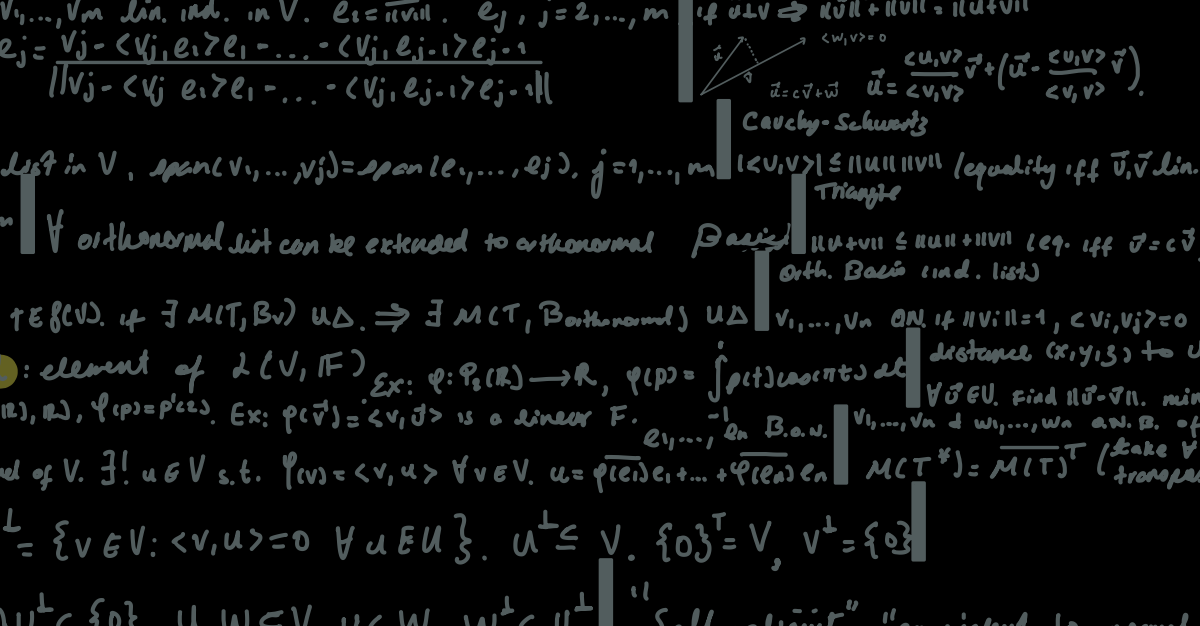 v₁,...,vₘ lin. ind. in V. e₁ = ‖v₁‖. eⱼ, j=2,...,m
eⱼ = vⱼ - <vⱼ, e₁>e₁ - ... - <vⱼ, eⱼ₋₁>eⱼ₋₁
‖vⱼ - <vⱼ e₁>e₁ - ... - <vⱼ, eⱼ₋₁>eⱼ₋₁‖
if u⊥v ⇒ ‖u‖ + ‖v‖ = ‖u+v‖
<w,v>=0
u⃗
u⃗=cv⃗+w⃗
u⃗ = <u,v>/<v,v> v⃗ + (u⃗ - <u,v>/<v,v> v⃗).
Cauchy-Schwartz
list in V, span(v₁,...,vⱼ)=span(e₁,...,eⱼ). j=1,...,m
|<u,v>| ≤ ‖u‖‖v‖ (equality iff u⃗,v⃗ lin.
Triangle
∀ orthonormal list can be extended to orthonormal Basis
‖u+v‖ ≤ ‖u‖+‖v‖ (eq. iff v⃗=cv⃗,
Orth. Basis (ind. list)
T∈L(V). if ∃ M(T,Bv) u∆. ⇒ ∃ M(T, Borthonormal) u∆
v₁,...,vₙ ON. if ‖vᵢ‖=1, <vᵢ,vⱼ>=0
: element of L(V,F)
Ex: φ:P₂(R)→R, φ(p)= ∫₋₁¹ p(t)cos(πt)dt
distance (x,y,z) to U
φ(p)=p'(2). Ex: φ(v⃗)=<v,u⃗> is a linear F.
∀u⃗∈U. Find ‖u⃗-v⃗‖. min
e₁,..., eₙ B.o.N.
v₁,...,vₙ & w₁,...,wₙ O.N.B. of
of V. ∃! u∈V s.t. φ(v)=<v,u> ∀v∈V. u= φ̅(̅e̅₁̅)̅e₁+...+φ̅(̅e̅ₙ̅)̅eₙ
M(T*)= M̅(̅T̅)̅ᵀ (take ∀
⊥ = {v∈V: <v,u>=0 ∀u∈U}. U⊥⊆ V. {0}ᵀ=V, V⊥={0}